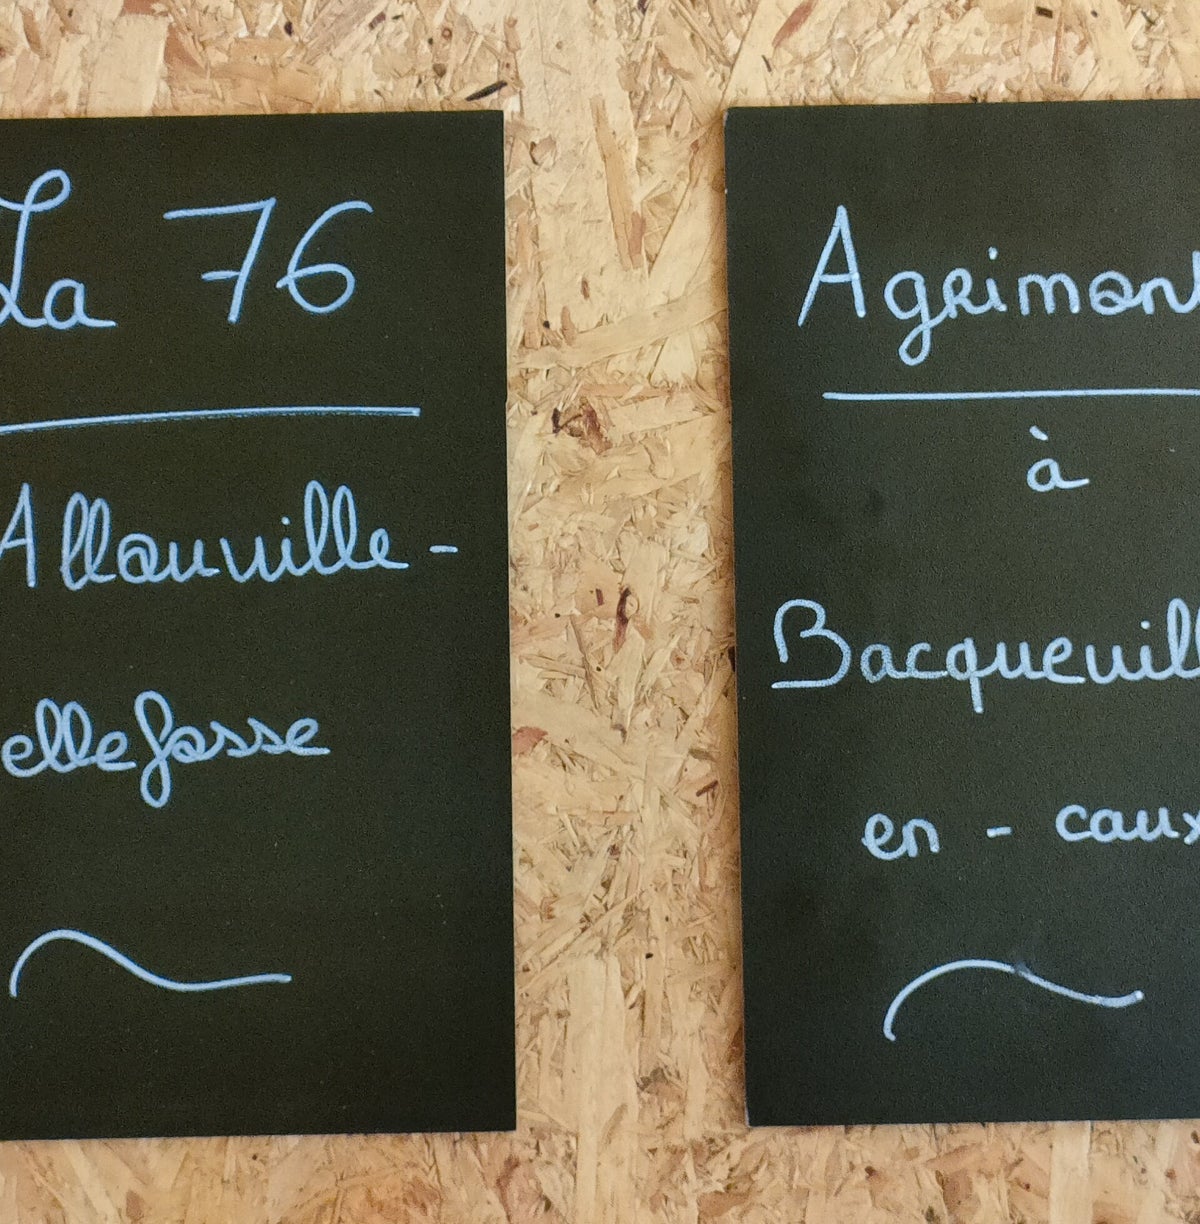 La 76
Allouville-
ellefosse
Agrimont
à
Bacquevill
en - caux